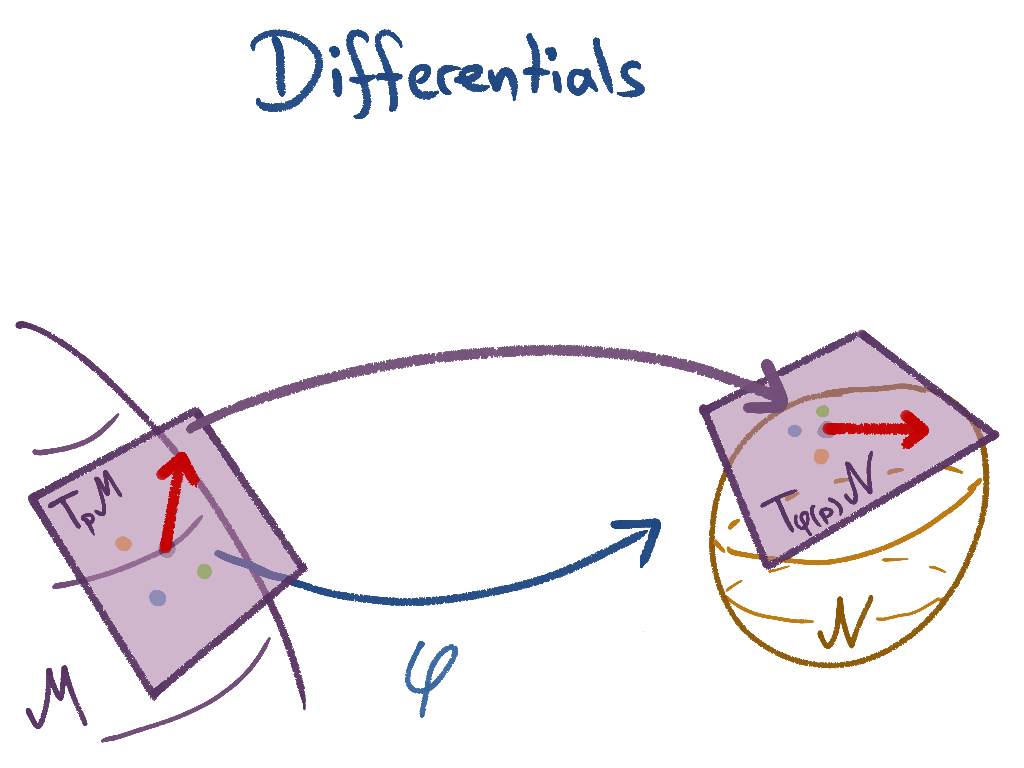 Differentials
TₚM
T_φ(p)N
φ
M
N